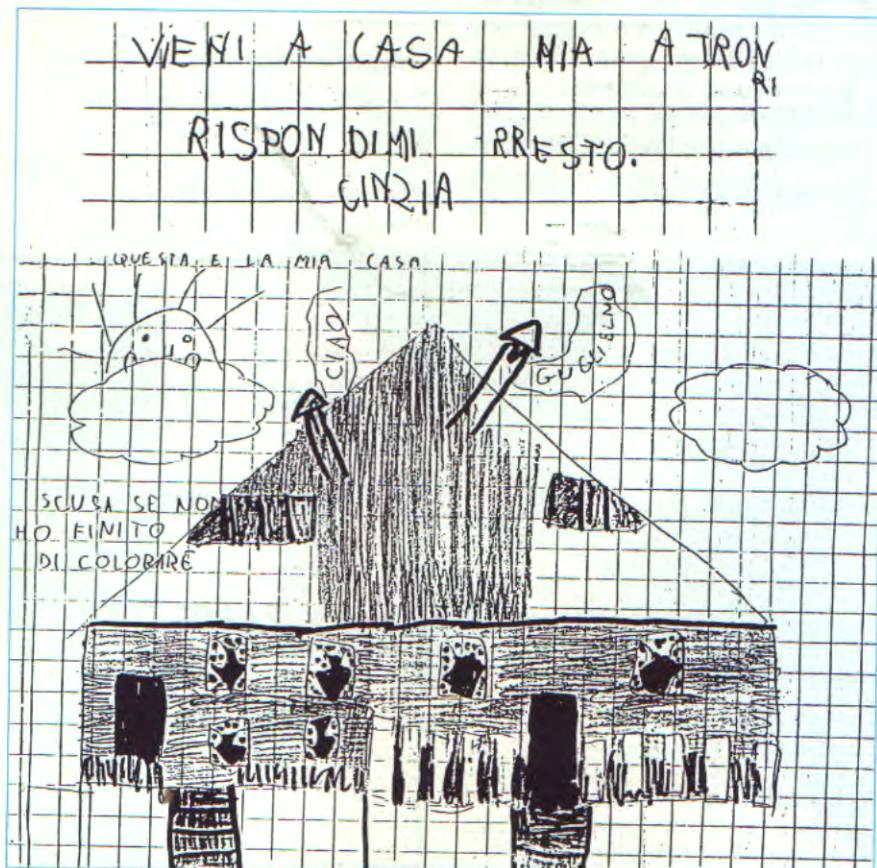 VIENI A CASA MIA A TROV
RI
RISPONDIMI RRESTO.
CINZIA
QUESTA E LA MIA CASA
CIAO
GUGLIELMO
SCUSA SE NON
HO FINITO
DI COLORARE